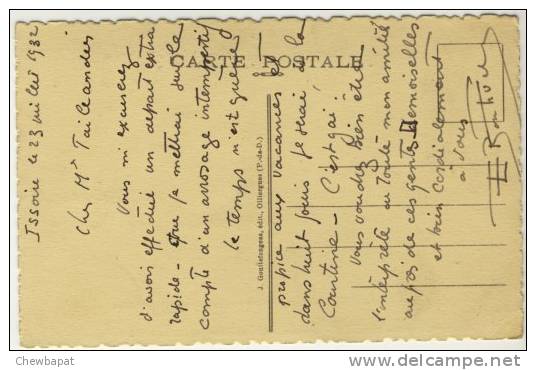 CARTE POSTALE
Issoire le 23 juillet 1932
Cher Mr Taillandier
Vous m'excuserez
d'avoir effectué un départ extra
rapide - que je mettrai sur le
compte d'un arrosage intempestif
le temps n'est guère
propice aux vacances et
dans huit jours je serai de la
Courtine - C'est gai
Vous voudrez bien être
l'interprète de toute mon amitié
auprès de ces gentes Demoiselles
et bien cordialement
à vous
J. Goutlefangeas, édit., Olliergues (P.-de-D.)
Chewbapat
delcampe.net